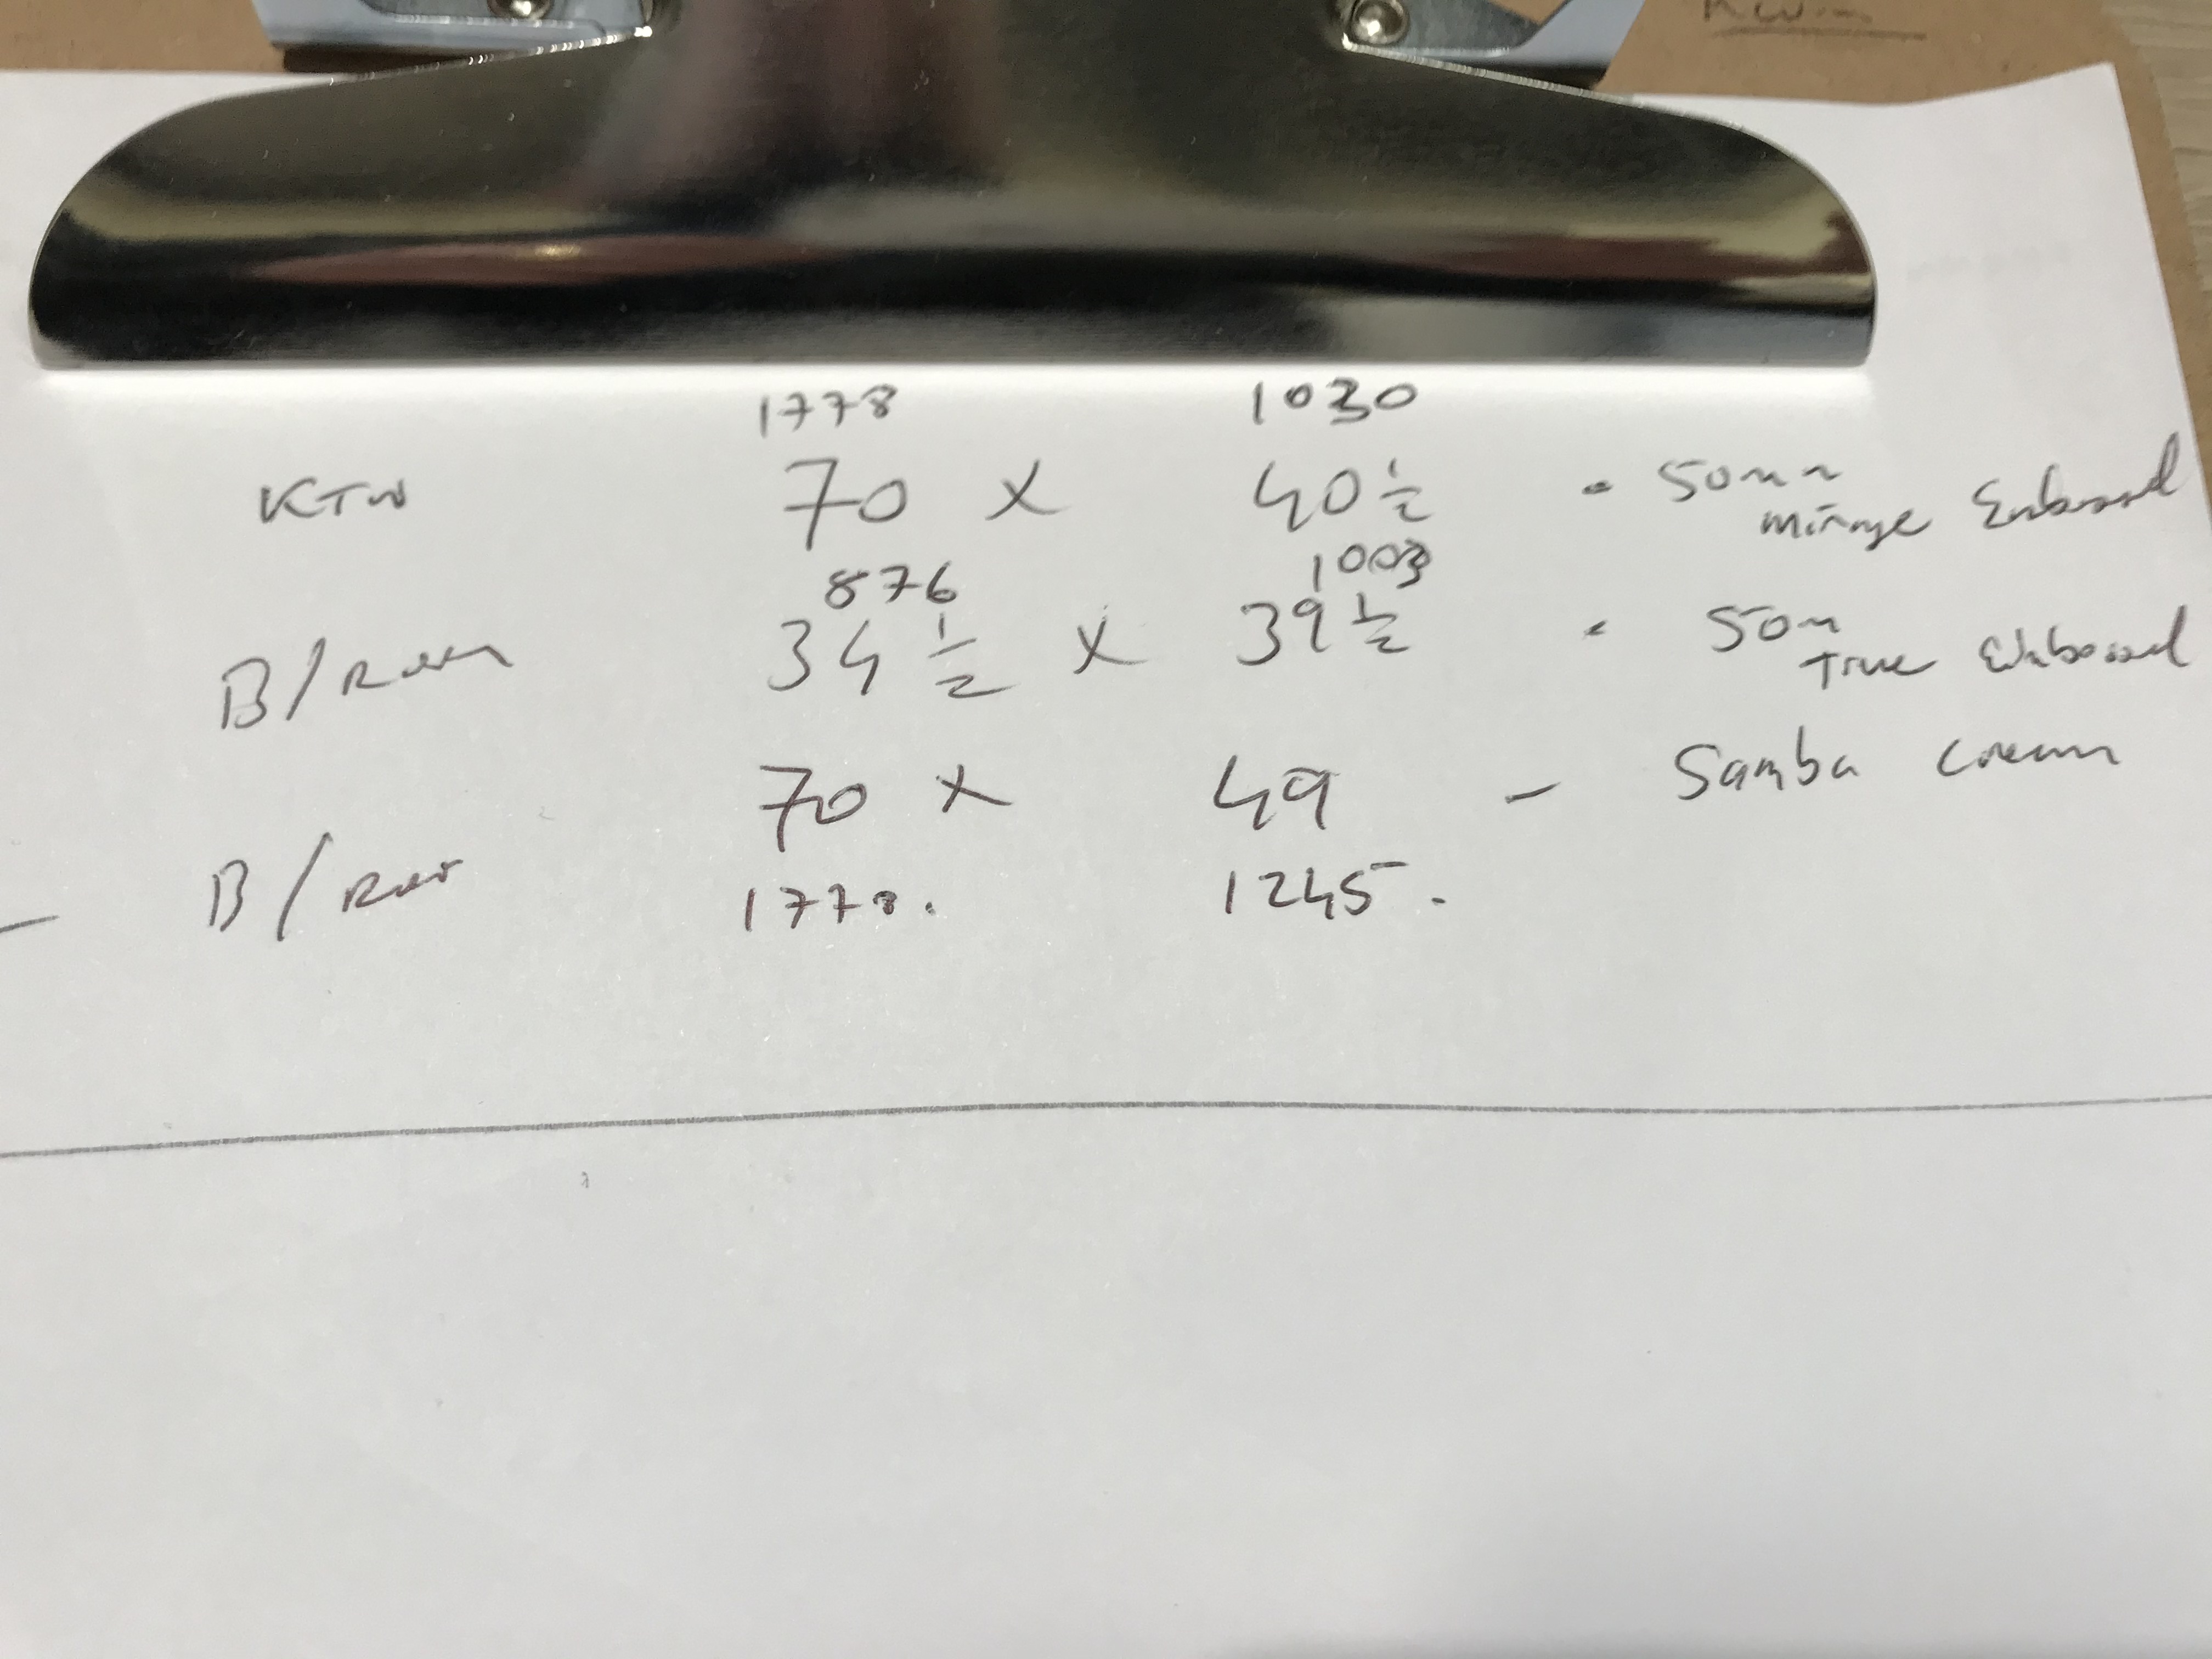 1778 1030
KTW 70 x 40 1/2 - 50mm
mirage Enboard
876 1003
B/Room 34 1/2 x 39 1/2 - 50m
True Enboard
70 x 49 - Samba Cream
B/Room 1778. 1245.